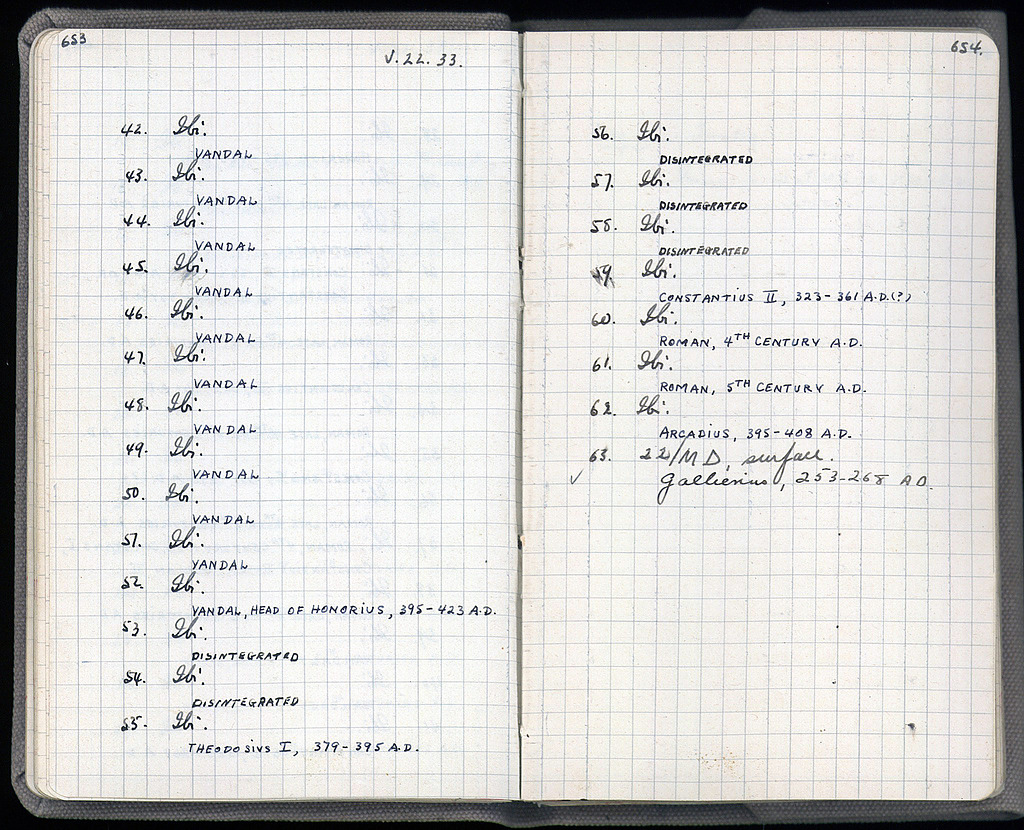 653
V. 22. 33.
42. Ibi.
VANDAL
43. Ibi.
VANDAL
44. Ibi.
VANDAL
45. Ibi.
VANDAL
46. Ibi.
VANDAL
47. Ibi.
VANDAL
48. Ibi.
VANDAL
49. Ibi.
VANDAL
50. Ibi.
VANDAL
51. Ibi.
VANDAL
52. Ibi.
VANDAL, HEAD OF HONORIUS, 395-423 A.D.
53. Ibi.
DISINTEGRATED
54. Ibi.
DISINTEGRATED
55. Ibi.
THEODOSIUS I, 379-395 A.D.
654.
56. Ibi.
DISINTEGRATED
57. Ibi.
DISINTEGRATED
58. Ibi.
DISINTEGRATED
59. Ibi.
CONSTANTIUS II, 323-361 A.D.(?)
60. Ibi.
ROMAN, 4TH CENTURY A.D.
61. Ibi.
ROMAN, 5TH CENTURY A.D.
62. Ibi.
ARCADIUS, 395-408 A.D.
63. 22/MD, surface.
✓ Gallienius, 253-268 AD.